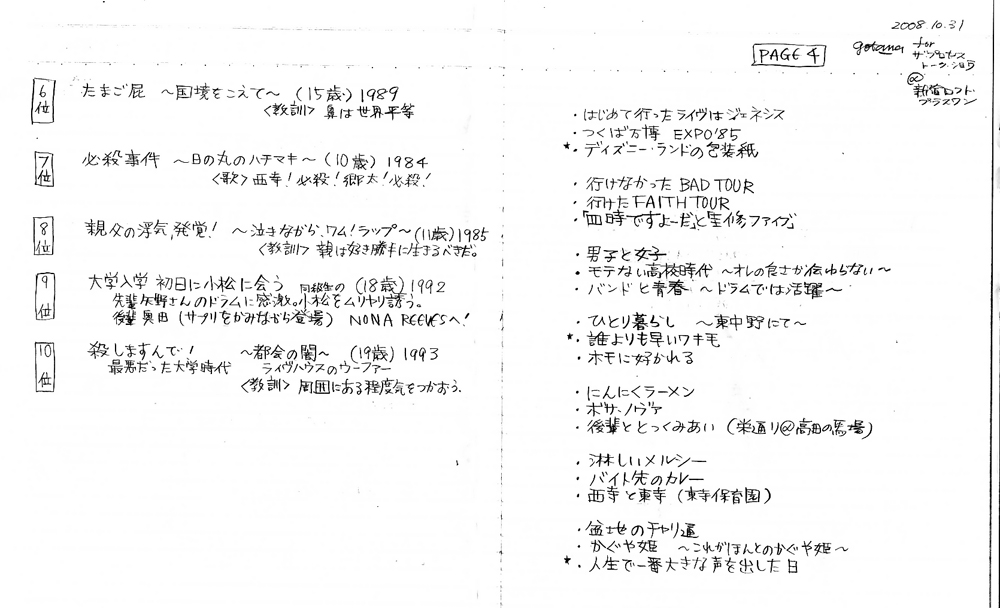 2008.10.31
gotana for
ザ・プロセス
トーク・ショウ
@
新宿ロフト
プラスワン
PAGE 4
6位 たまご屁 〜国境をこえて〜 (15歳) 1989
<教訓> 鼻は世界平等
7位 必殺事件 〜日の丸のハチマキ〜 (10歳) 1984
<歌> 西寺!必殺!郷太!必殺!
8位 親父の浮気、発覚! 〜泣きながら、ワム!ラップ〜 (11歳) 1985
<教訓> 親は好き勝手に生きるべきだ。
9位 大学入学 初日に小松に会う 同級生の (18歳) 1992
先輩矢野さんのドラムに感激。小松をムリヤリ誘う。
後輩奥田 (サプリをかみながら登場) NONA REEVESへ!
10位 殺しますんで! 〜都会の闇〜 (19歳) 1993
最悪だった大学時代 ライヴハウスのウーファー
<教訓> 周囲にある程度気をつかおう。
・はじめて行ったライヴはジェネシス
・つくば万博 EXPO'85
★・ディズニー・ランドの包装紙
・行けなかった BAD TOUR
・行けた FAITH TOUR
・「四時ですよーだ」と「必修ファイブ」
・男子と女子
・モテない高校時代 〜オレの良さが伝わらない〜
・バンドと青春 〜ドラムでは活躍〜
・ひとり暮らし 〜東中野にて〜
★・誰よりも早いワキ毛
・ホモに好かれる
・にんにくラーメン
・ボサ・ノヴァ
・後輩ととっくみあい (栄通り@高田の馬場)
・淋しいメルシー
・バイト先のカレー
・西寺と東寺 (東寺保育園)
・盆地のチャリ道
・かぐや姫 〜これがほんとのかぐや姫〜
★・人生で一番大きな声を出した日